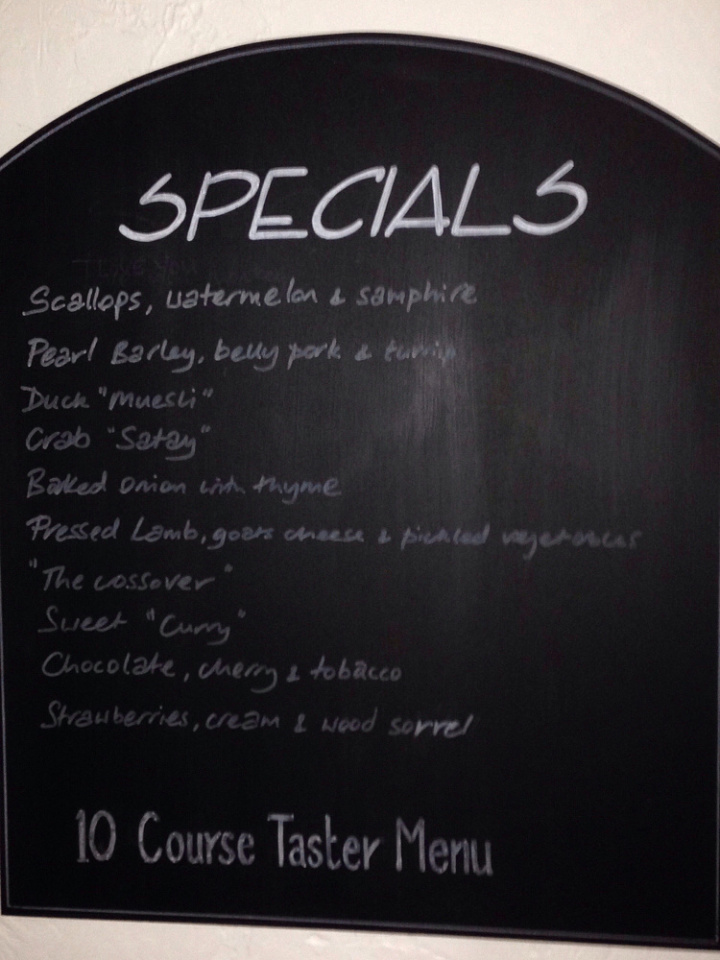 SPECIALS
Scallops, watermelon & samphire
Pearl Barley, belly pork & turnip
Duck "muesli"
Crab "Satay"
Baked onion with thyme
Pressed Lamb, goats cheese & pickled vegetables
"The cossover"
Sweet "Curry"
Chocolate, cherry & tobacco
Strawberries, cream & wood sorrel
10 Course Taster Menu